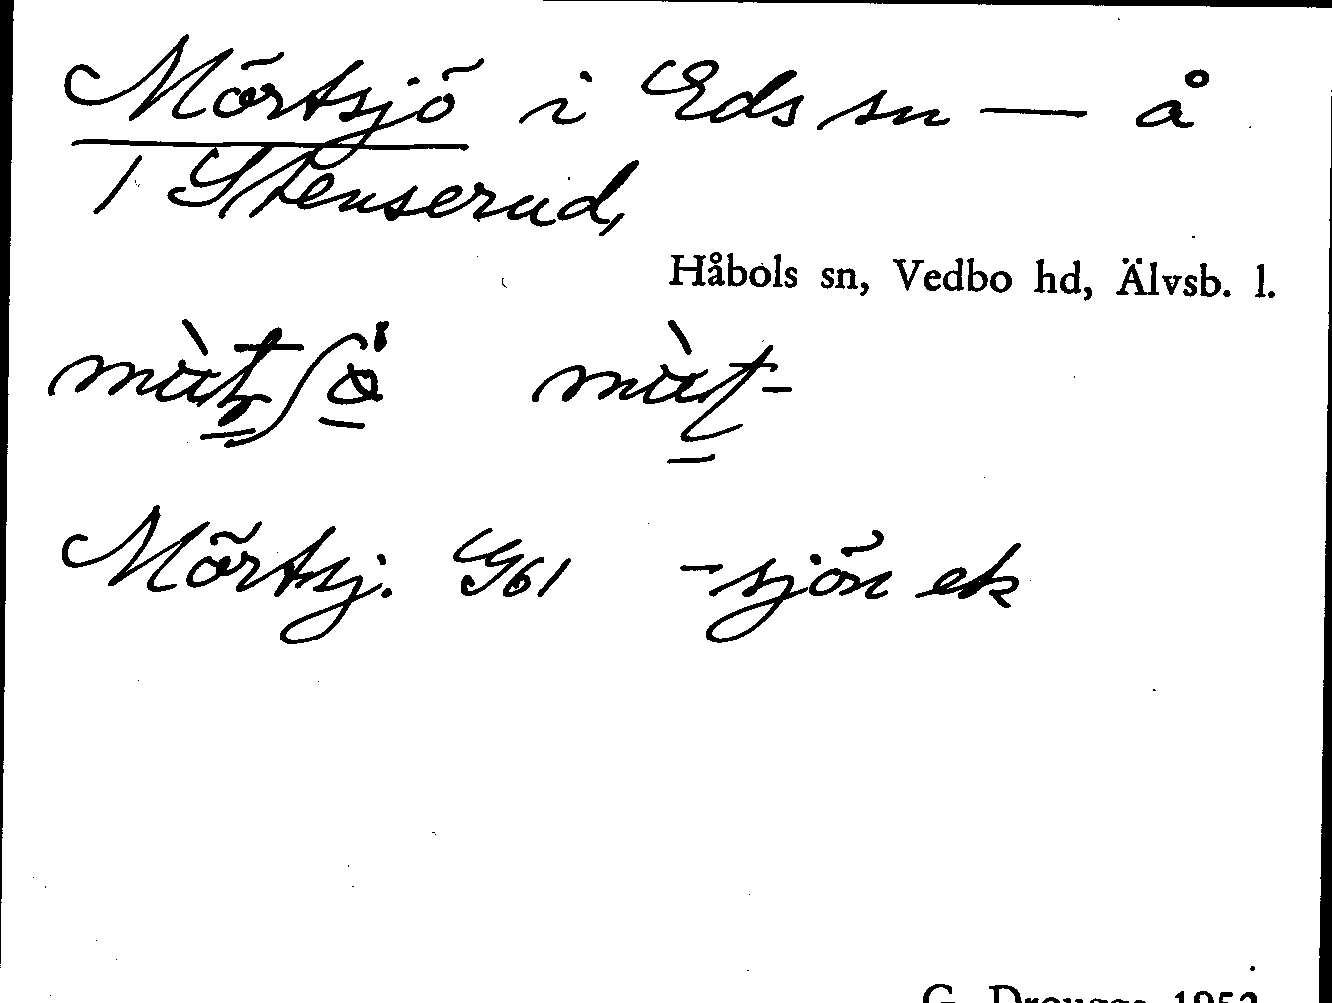 Mörtsjö i Eds sn — å
1 Stenserud,
Håbols sn, Vedbo hd, Älvsb. l.
Mörtsj. G61 -sjön ek
G. Drougge 1952